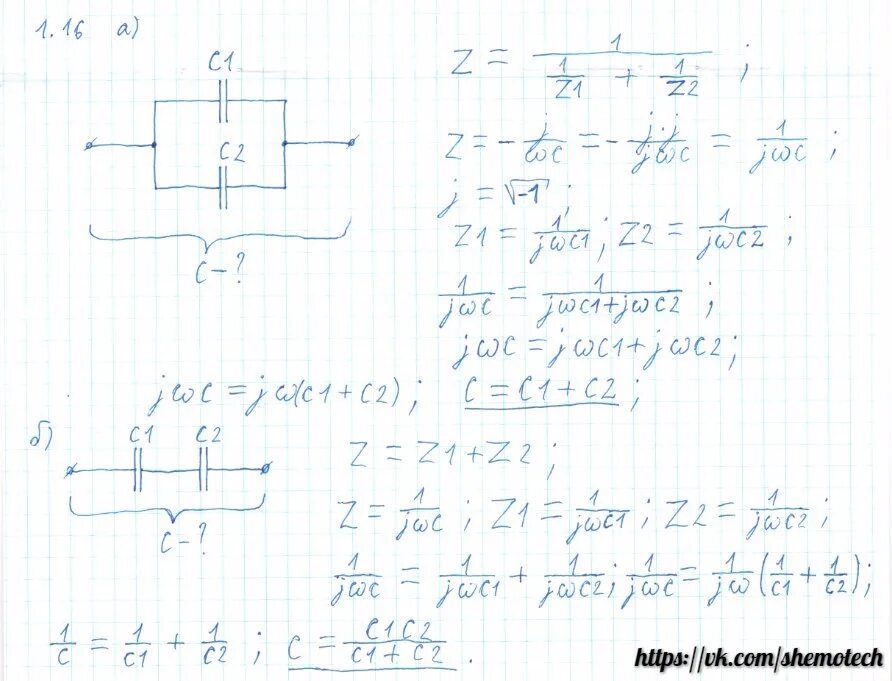 1.16 а)
C1
C2
C-?
Z = 1/(1/Z1 + 1/Z2);
Z = -j/ωC = -j·j/jωC = 1/jωC;
j = √-1;
Z1 = 1/jωC1; Z2 = 1/jωC2;
1/jωC = 1/(jωC1+jωC2);
jωC = jωC1+jωC2;
jωC = jω(C1+C2); C = C1+C2;
б)
C1 C2
C-?
Z = Z1+Z2;
Z = 1/jωC; Z1 = 1/jωC1; Z2 = 1/jωC2;
1/jωC = 1/jωC1 + 1/jωC2; 1/jωC = 1/jω(1/C1 + 1/C2);
1/C = 1/C1 + 1/C2; C = C1C2/(C1+C2).
https://vk.com/shemotech